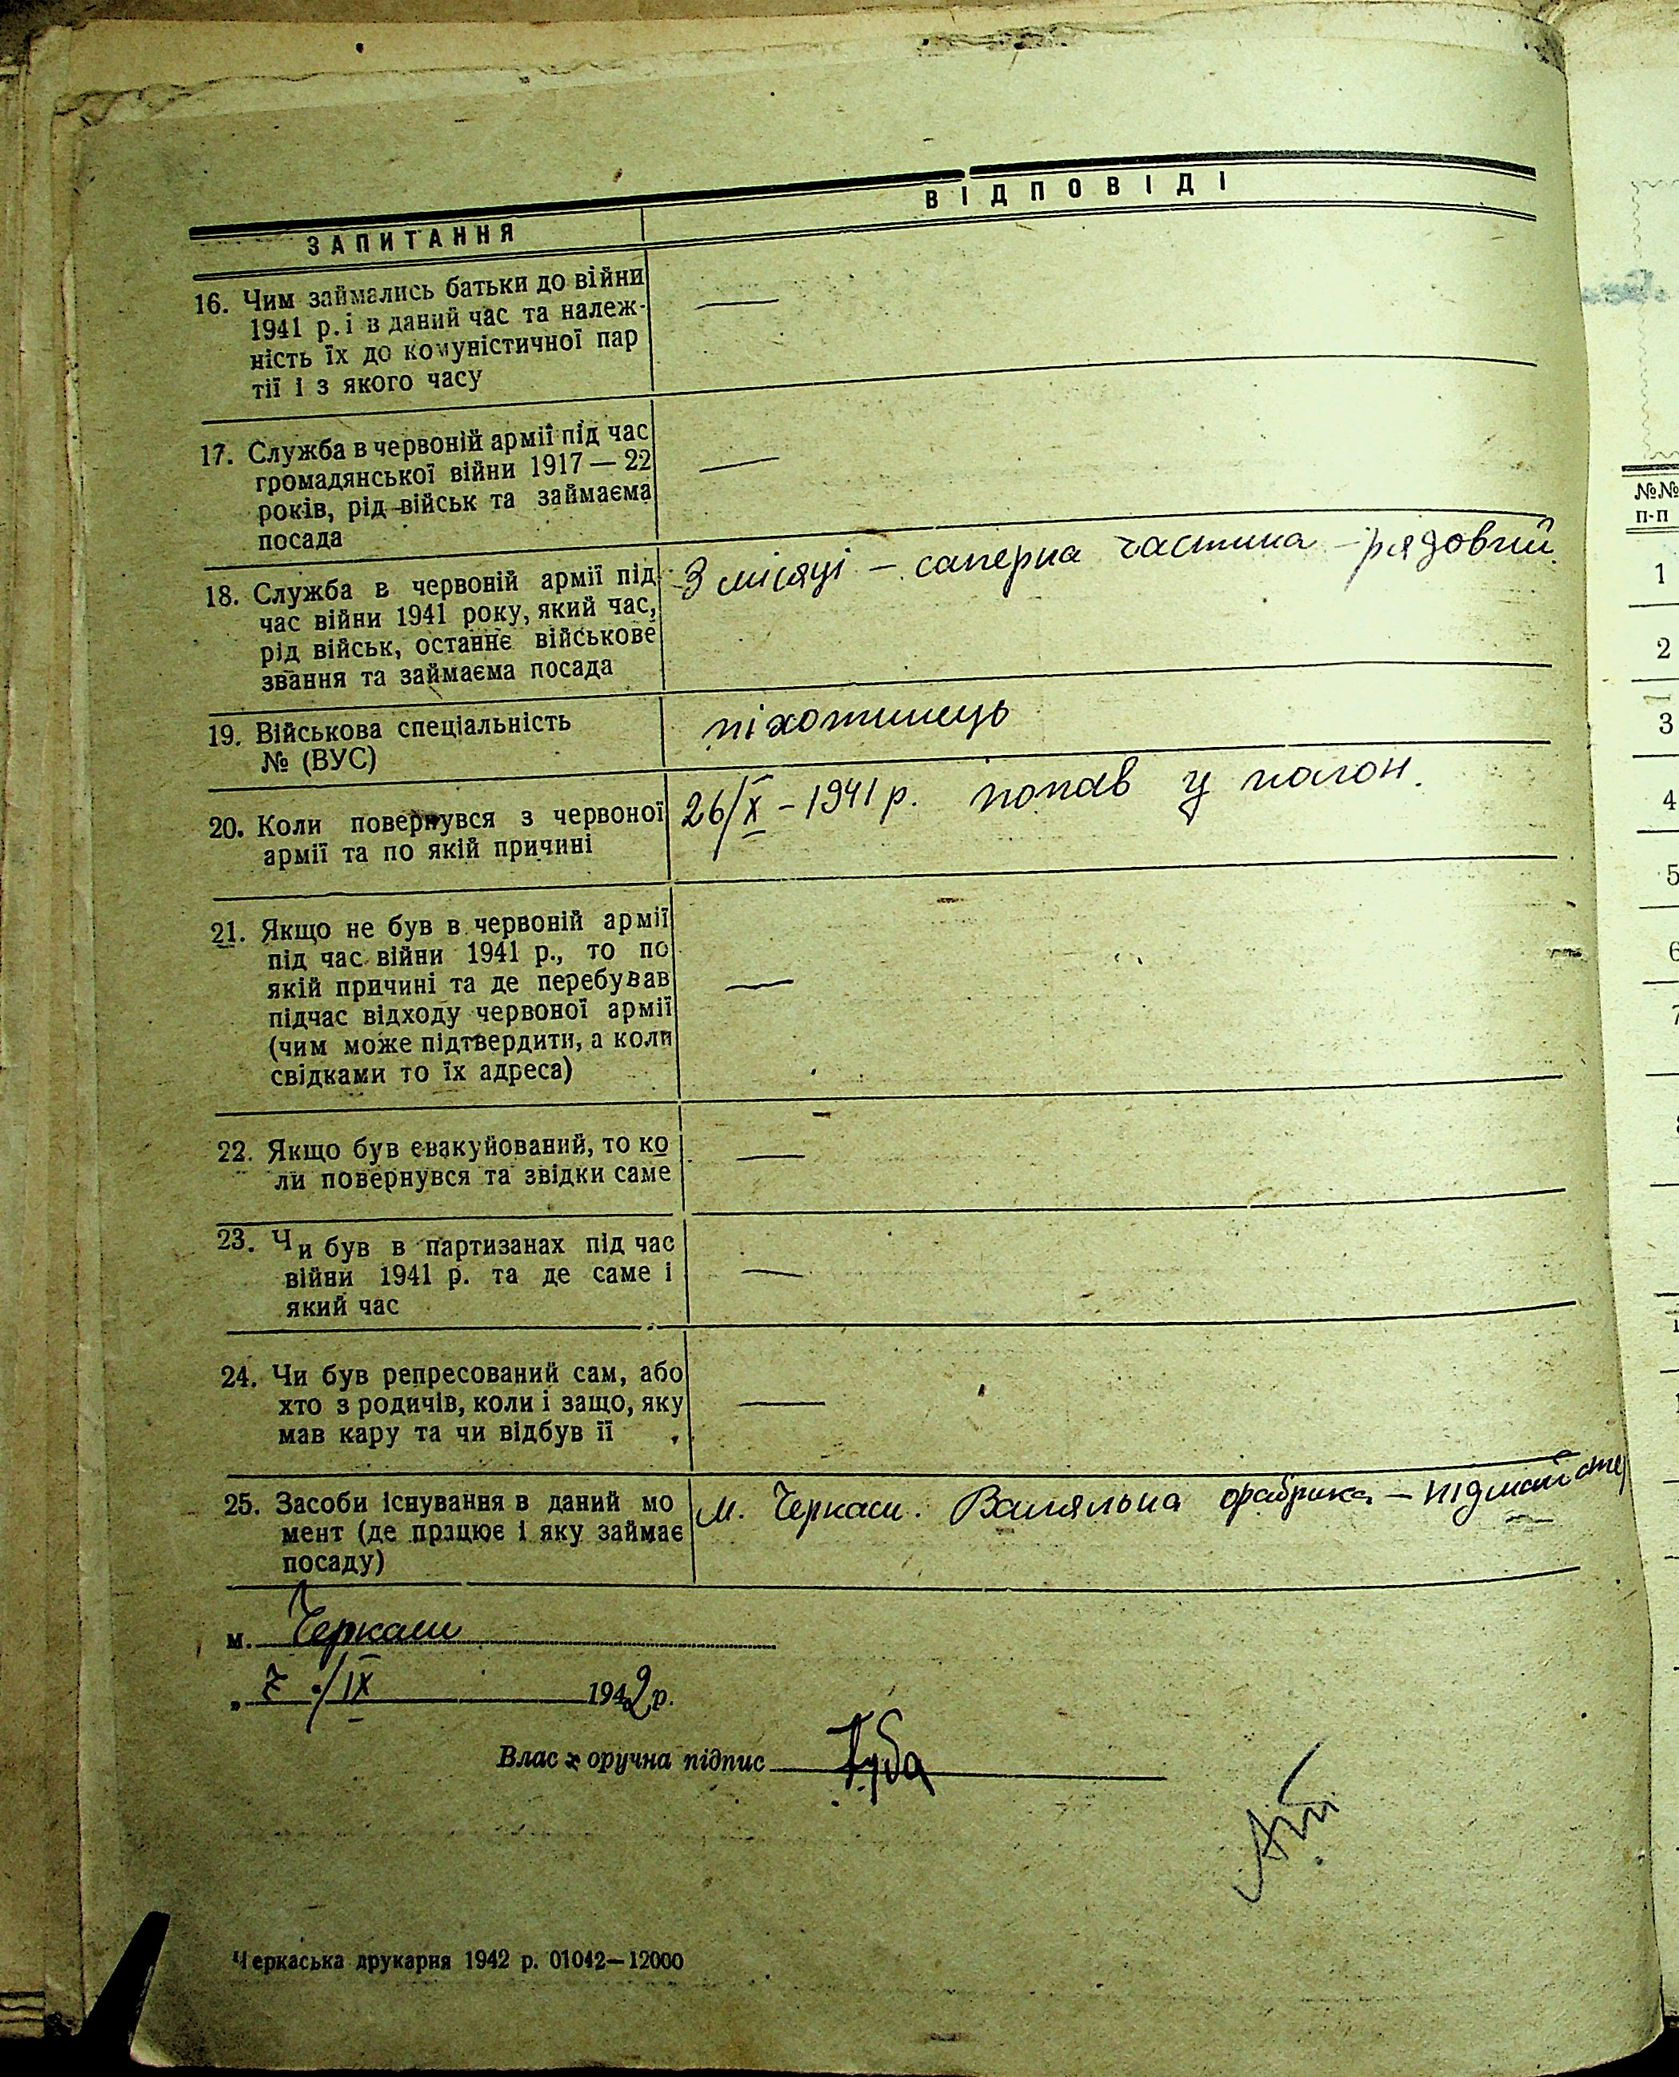 ЗАПИТАННЯ
ВІДПОВІДІ
16. Чим займались батьки до війни
1941 р. і в даний час та належ-
ність їх до комуністичної пар
тії і з якого часу
—
17. Служба в червоній армії під час
громадянської війни 1917 — 22
років, рід військ та займаєма
посада
—
18. Служба в червоній армії під
час війни 1941 року, який час,
рід військ, останнє військове
звання та займаєма посада
3 місяці – саперна частина – рядовий.
19. Військова спеціальність
№ (ВУС)
піхотинець
20. Коли повернувся з червоної
армії та по якій причині
26/X – 1941 р. попав у полон.
21. Якщо не був в червоній армії
під час війни 1941 р., то по
якій причині та де перебував
підчас відходу червоної армії
(чим може підтвердити, а коли
свідками то їх адреса)
—
22. Якщо був евакуйований, то ко
ли повернувся та звідки саме
—
23. Чи був в партизанах під час
війни 1941 р. та де саме і
який час
—
24. Чи був репресований сам, або
хто з родичів, коли і защо, яку
мав кару та чи відбув її
—
25. Засоби існування в даний мо
мент (де працює і яку займає
посаду)
м. Черкаси. Валяльна фабрика – підмайстер
м. Черкаси
„ 7 /IX 1942 р.
Влас оручна підпис
Черкаська друкарня 1942 р. 01042—12000
№№
п-п
1
2
3
4
5
6
7